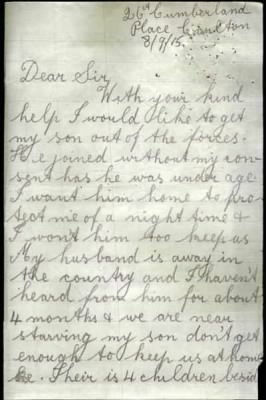 26 Cumberland
Place Carlton
8/9/15
Dear Sir
With your kind
help I would like to get
my son out of the forces.
He joined without my con-
sent has he was under age
I want him home to pro-
tect me of a night time &
I won't him too keep us
My husband is away in
the country and I haven't
heard from him for about
4 months & we are near
starving my son don't get
enough to keep us at hom
Their is 4 children besid